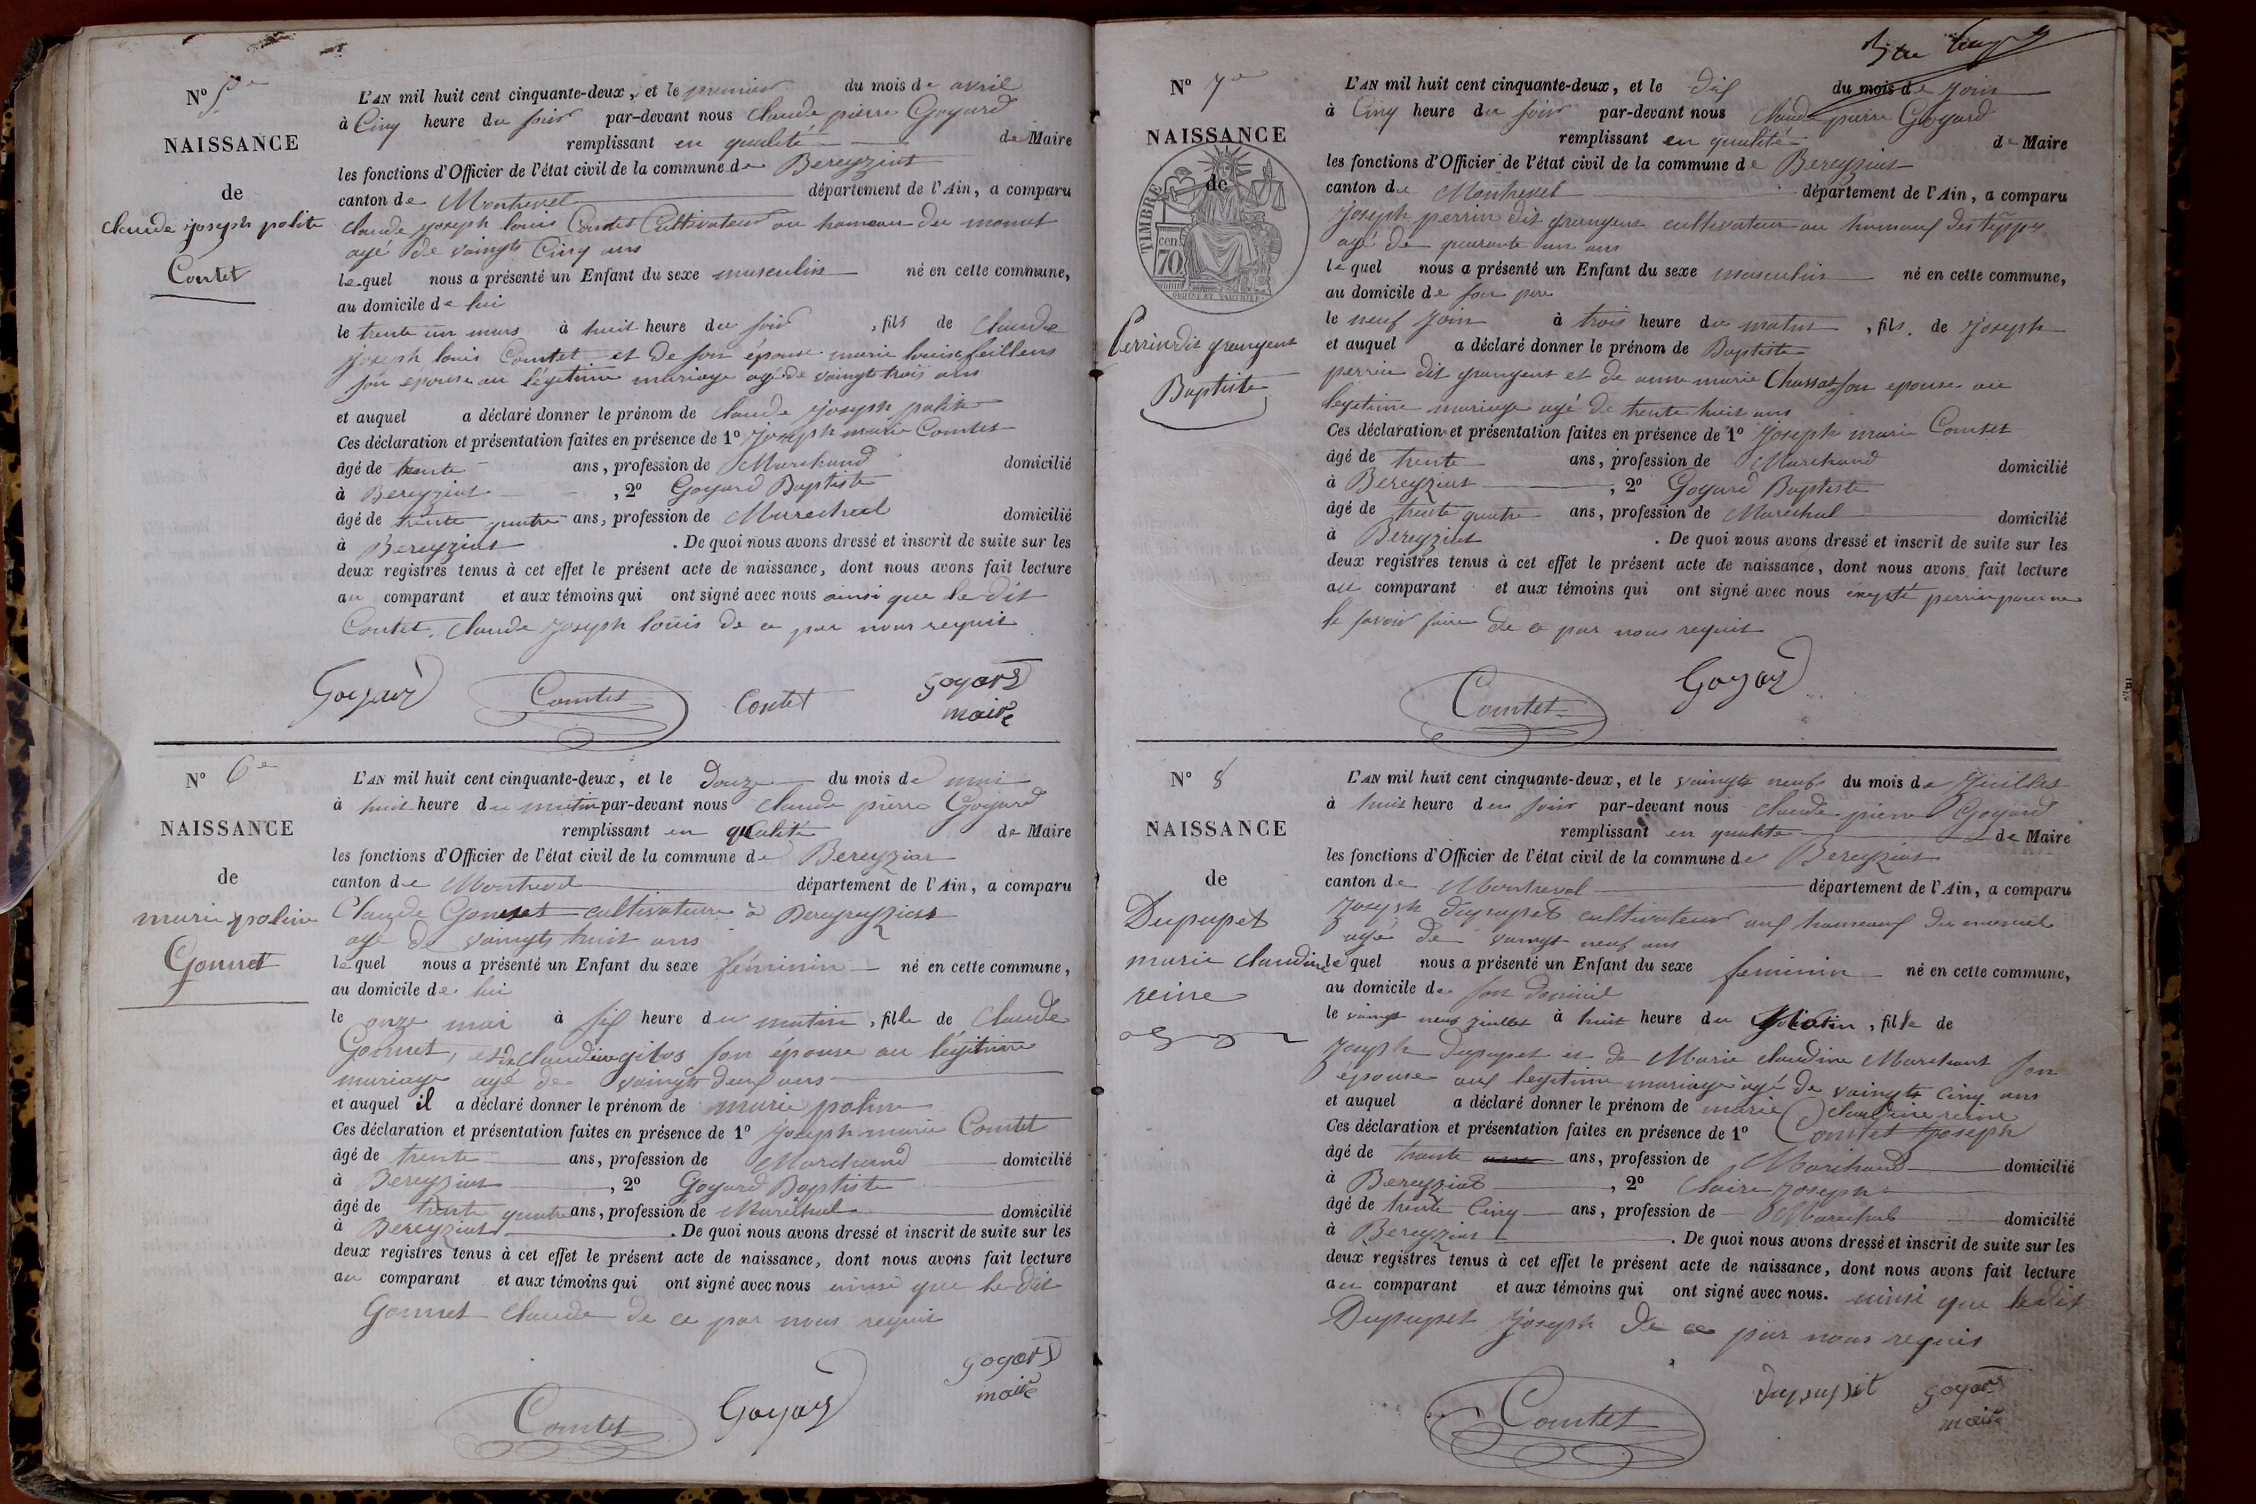 N° 5e
NAISSANCE
de
claude joseph polite
Contet
L'AN mil huit cent cinquante-deux, et le premier du mois de avril
à Cinq heure du soir par-devant nous claude pierre Goyard
remplissant en qualité de Maire
les fonctions d'Officier de l'état civil de la commune de Bereyziat
canton de Montrevel département de l'Ain, a comparu
claude joseph louis Contet Cultivateur au hameau du
agé de vaingt Cinq ans
lequel nous a présenté un Enfant du sexe masculin né en cette commune,
au domicile de lui
le trente un mars à huit heure du soir, fils de claude
joseph louis Comtet et de son épouse marie louise feillens
son epouse au légetime mariage agé de vaingt trois ans
et auquel a déclaré donner le prénom de claude joseph polite
Ces déclaration et présentation faites en présence de 1° joseph marie Comtet
âgé de trente ans, profession de Marchand domicilié
à Bereyziat, 2° Goyard Baptiste
âgé de trente quatre ans, profession de Marechal domicilié
à Bereyziat. De quoi nous avons dressé et inscrit de suite sur les
deux registres tenus à cet effet le présent acte de naissance, dont nous avons fait lecture
au comparant et aux témoins qui ont signé avec nous ainsi que le dit
Contet, claude joseph louis de ce par nous requit
Goyard Comtet Contet goyard
maire
N° 6e
NAISSANCE
de
marie poline
Gonnet
L'AN mil huit cent cinquante-deux, et le Douze du mois de mai
à huit heure du matin par-devant nous claude pierre Goyard
remplissant en qualité de Maire
les fonctions d'Officier de l'état civil de la commune de Bereyziat
canton de Montrevel département de l'Ain, a comparu
Claude Gonnet cultivateur à
agé de vaingt huit ans
lequel nous a présenté un Enfant du sexe féminin né en cette commune,
au domicile de lui
le onze mai à six heure du matin, fille de claude
Gonnet, et de claudine gibos son épouse au légitime
mariage agé de vaingt deux ans
et auquel il a déclaré donner le prénom de marie poline
Ces déclaration et présentation faites en présence de 1° joseph marie Comtet
âgé de trente ans, profession de Marchand domicilié
à Bereyziat, 2° Goyard Baptiste
âgé de trente quatre ans, profession de Maréchal domicilié
à Bereyziat. De quoi nous avons dressé et inscrit de suite sur les
deux registres tenus à cet effet le présent acte de naissance, dont nous avons fait lecture
au comparant et aux témoins qui ont signé avec nous ainsi que le dit
Gonnet claude de ce par nous requit
Comtet Goyard goyard
maire
N° 7e
NAISSANCE
de
TIMBRE
cen
70
Perrin dit grangent
Baptiste
L'AN mil huit cent cinquante-deux, et le dix du mois de join
à Cinq heure du soir par-devant nous claude pierre Goyard
remplissant en qualité de Maire
les fonctions d'Officier de l'état civil de la commune de Bereyziat
canton de Montrevel département de l'Ain, a comparu
joseph perrin dit grangent cultivateur au hameau des
agé de quarante un ans
lequel nous a présenté un Enfant du sexe masculin né en cette commune,
au domicile de son pere
le neuf join à trois heure du matin, fils de joseph
et auquel a déclaré donner le prénom de Baptiste
perrin dit grangent et de anne marie Chassat son epouse au
legetime mariage agé de trente huit ans
Ces déclaration et présentation faites en présence de 1° joseph marie Comtet
âgé de trente ans, profession de Marchand domicilié
à Bereyziat, 2° Goyard Baptiste
âgé de trente quatre ans, profession de Maréchal domicilié
à Bereyziat. De quoi nous avons dressé et inscrit de suite sur les
deux registres tenus à cet effet le présent acte de naissance, dont nous avons fait lecture
au comparant et aux témoins qui ont signé avec nous perrin pour ne
le savoir faire de ce par nous requit
Comtet Goyard
N° 8
NAISSANCE
de
Dupupet
marie claudine
reine
L'AN mil huit cent cinquante-deux, et le vaingt neuf du mois de Juillet
à huit heure du soir par-devant nous claude pierre Goyard
remplissant en qualité de Maire
les fonctions d'Officier de l'état civil de la commune de Bereyziat
canton de Montrevel département de l'Ain, a comparu
joseph dupupet cultivateur aux hameaux du
agé de vaingt neuf ans
lequel nous a présenté un Enfant du sexe feminin né en cette commune,
au domicile de son domicil
le vaingt neuf juillet à huit heure du Matin, fille de
joseph dupupet et de Marie claudine Marchant son
épouse aux legitime mariage agé de vaingt cinq ans
et auquel a déclaré donner le prénom de marie claudine reine
Ces déclaration et présentation faites en présence de 1° Comtet Joseph
âgé de trante ans, profession de Marchand domicilié
à Bereyziat, 2° Claire Joseph
âgé de trente Cinq ans, profession de Marechal domicilié
à Bereyziat. De quoi nous avons dressé et inscrit de suite sur les
deux registres tenus à cet effet le présent acte de naissance, dont nous avons fait lecture
au comparant et aux témoins qui ont signé avec nous. ainsi que ledit
Dupupet Joseph de ce par nous requis
Comtet dupupet goyard
maire